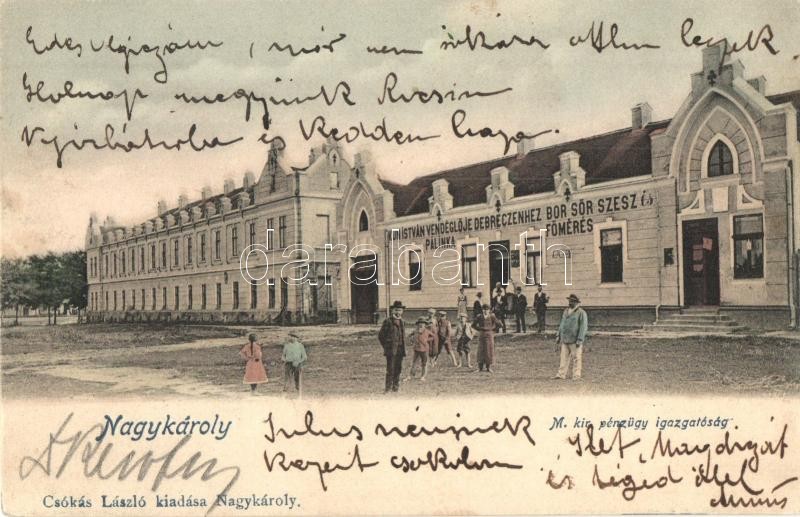 Édes Virgiczám, már nem sokára otthon leszek
Holnap megyünk Kocsin
Nyirbátorba és Kedden haza.
ISTVÁN VENDÉGLŐJE DEBRECZENHEZ BOR SÖR SZESZ és
PÁLINKA FŐMÉRÉS
darabanth.com
Nagykároly
M. kir. pénzügy igazgatóság
Julus néninek
kezeit csokolom
Ilet, Magduskát
és téged ölel
Csókás László kiadása Nagykároly.